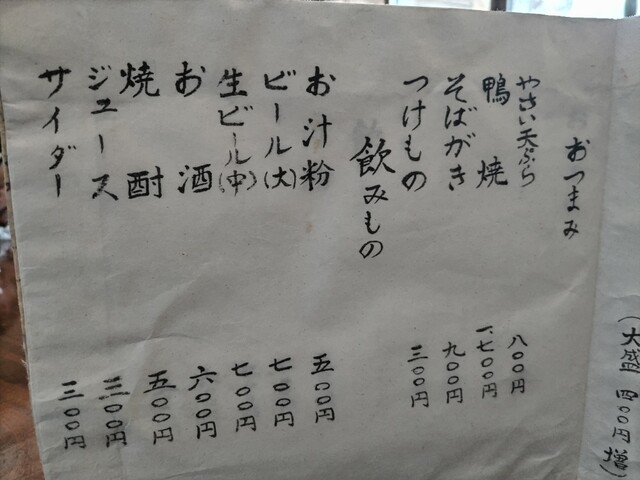 (大盛 四〇〇円増)
おつまみ
やさい天ぷら 八〇〇円
鴨焼 一、七〇〇円
そばがき 九〇〇円
つけもの 三〇〇円
飲みもの
お汁粉 五〇〇円
ビール(大) 七〇〇円
生ビール(中) 七〇〇円
お酒 六〇〇円
焼酎 五〇〇円
ジュース 三〇〇円
サイダー 三〇〇円